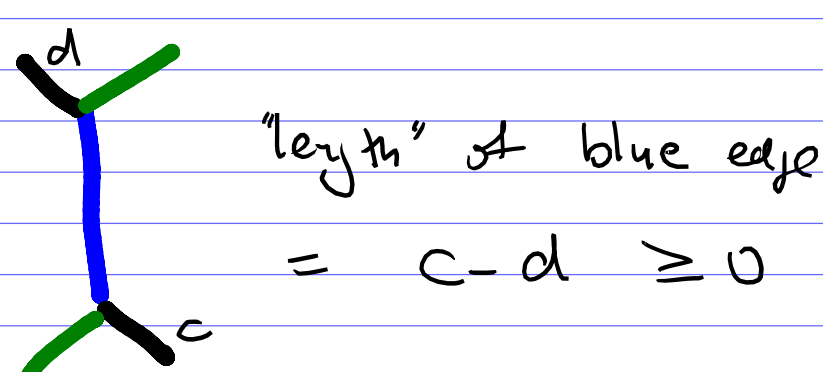 d
"length" of blue edge
= c - d ≥ 0
c